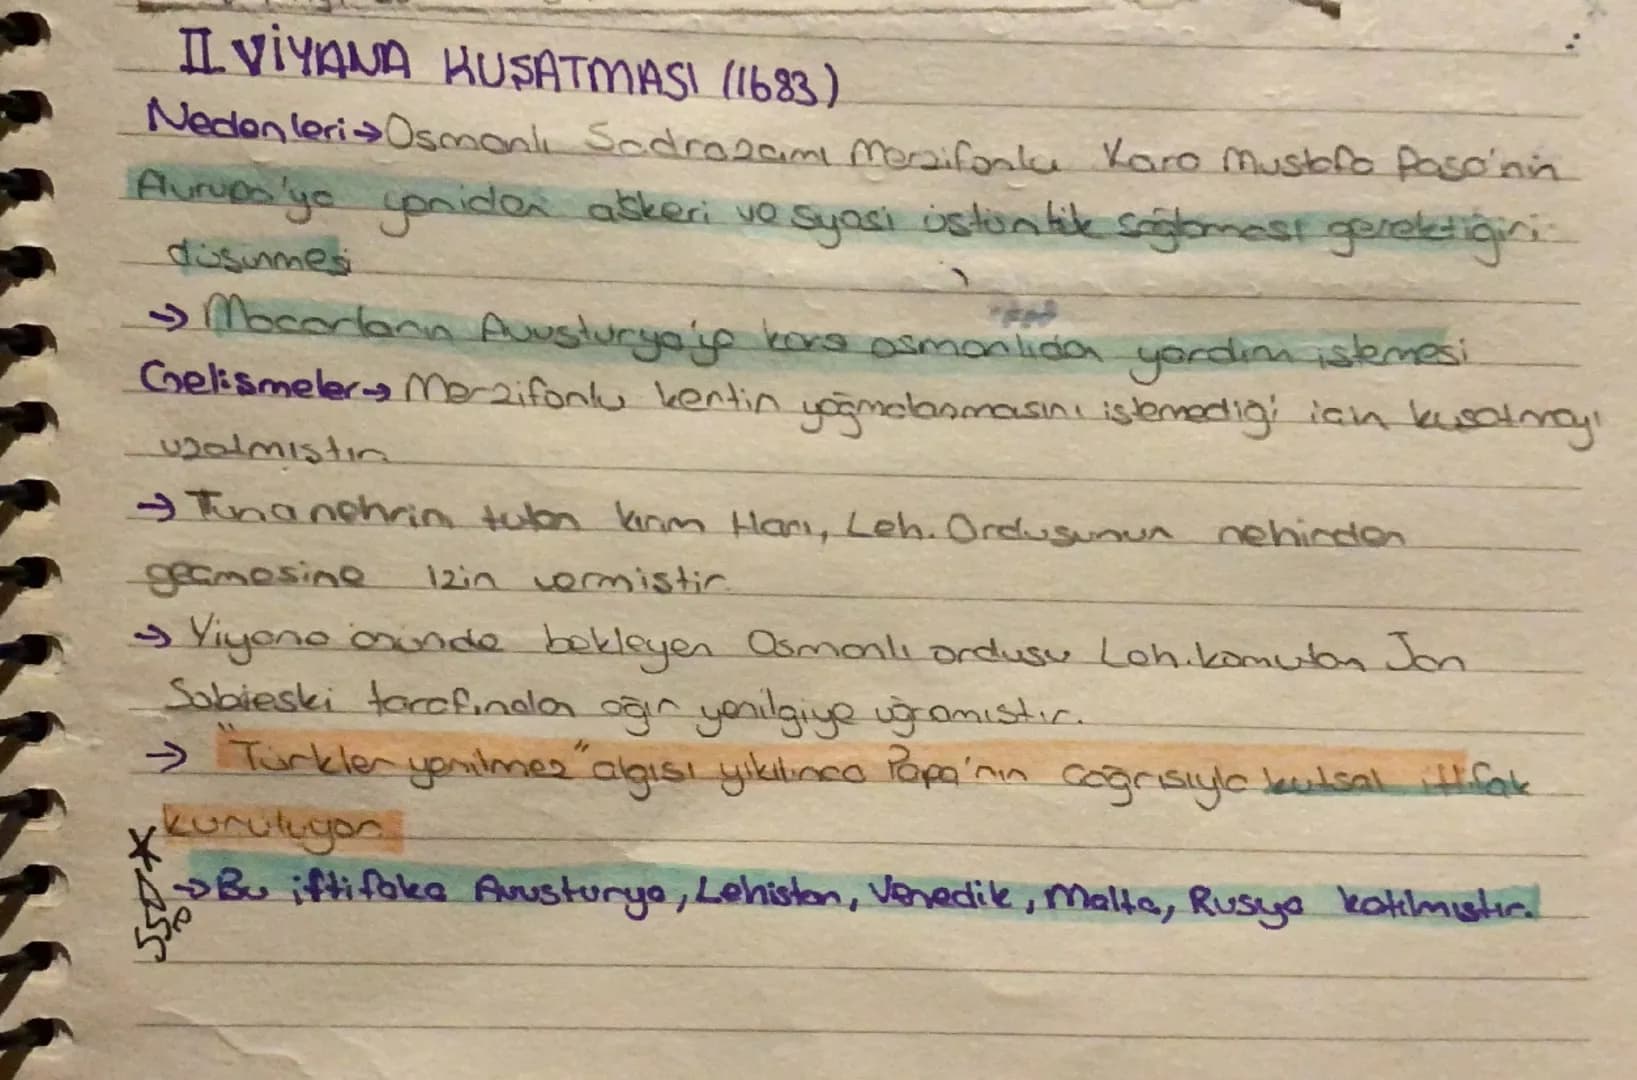 II. VİYANA KUŞATMASI (1683)
Nedenleri→Osmanlı Sadrazamı Merzifonlu Kara Mustafa Paşa'nın
Avrupa'ya yeniden askeri ve syasi üstünlük sağlaması gerektiğini
düşünmesi
→ Macarların Avusturya'ya karşı osmanlıdan yardım istemesi
Gelişmeler→ Merzifonlu kentin yağmalanmasını istemediği için kuşatmayı
uzatmıştır.
→ Tuna nehrin tutan Kırım Hanı, Leh. Ordusunun nehirden
geçmesine izin vermiştir.
→ Viyana önünde bekleyen Osmanlı ordusu Leh. komutan Jan
Sobieski tarafından ağır yenilgiye uğramıştır.
→ "Türkler yenilmez" algısı yıkılınca Papa'nın çağrısıyla kutsal ittifak
kuruluyor.
→Bu iftifaka Avusturya, Lehistan, Venedik, Malta, Rusya katılmıştır.